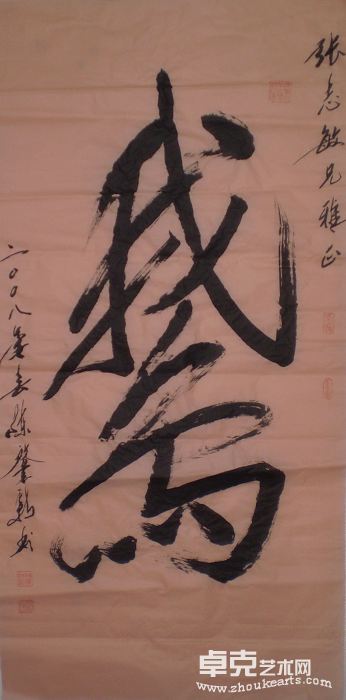 张志敏兄雅正
鵞
二〇〇八年春
卓克艺术网
www.zhoukearts.com